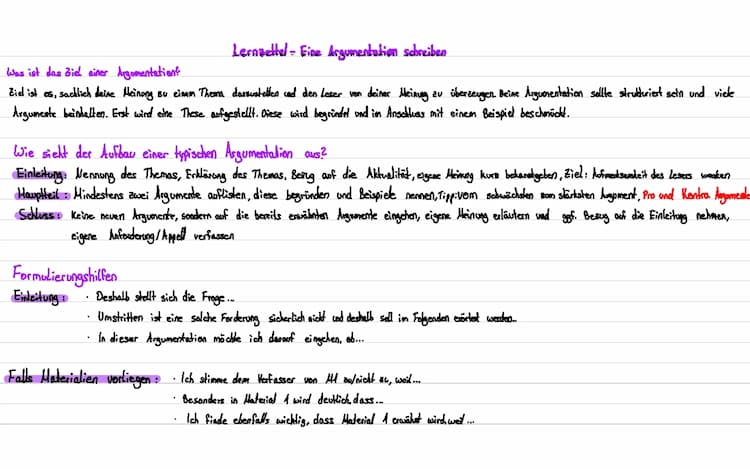 Lernzettel - Eine Argumentation schreiben
Was ist das Ziel einer Argumentation?
Ziel ist es, sachlich deine Meinung zu einem Thema darzustellen und den Leser von deiner Meinung zu überzeugen. Deine Argumentation sollte strukturiert sein und viele
Argumente beinhalten. Erst wird eine These aufgestellt. Diese wird begründet und im Anschluss mit einem Beispiel beschmückt.
Wie sieht der Aufbau einer typischen Argumentation aus?
Einleitung: Nennung des Themas, Erklärung des Themas, Bezug auf die Aktualität, eigene Meinung kurz bekanntgeben, Ziel: Aufmerksamkeit des Lesers wecken
Hauptteil: Mindestens zwei Argumente auflisten, diese begründen und Beispiele nennen, Tipp: vom schwächsten zum stärksten Argument, Pro und Kontra Argumente
Schluss: Keine neuen Argumente, sondern auf die bereits erwähnten Argumente eingehen, eigene Meinung erläutern und ggf. Bezug auf die Einleitung nehmen,
eigene Aufforderung/Appell verfassen
Formulierungshilfen
Einleitung: · Deshalb stellt sich die Frage...
· Umstritten ist eine solche Forderung sicherlich nicht und deshalb soll im Folgenden erörtert werden...
· In dieser Argumentation möchte ich darauf eingehen, ob...
Falls Materialien vorliegen: · Ich stimme dem Verfasser von M1 zu/nicht zu, weil...
· Besonders in Material 1 wird deutlich, dass...
· Ich finde ebenfalls wichtig, dass Material 1 erwähnt wird, weil...